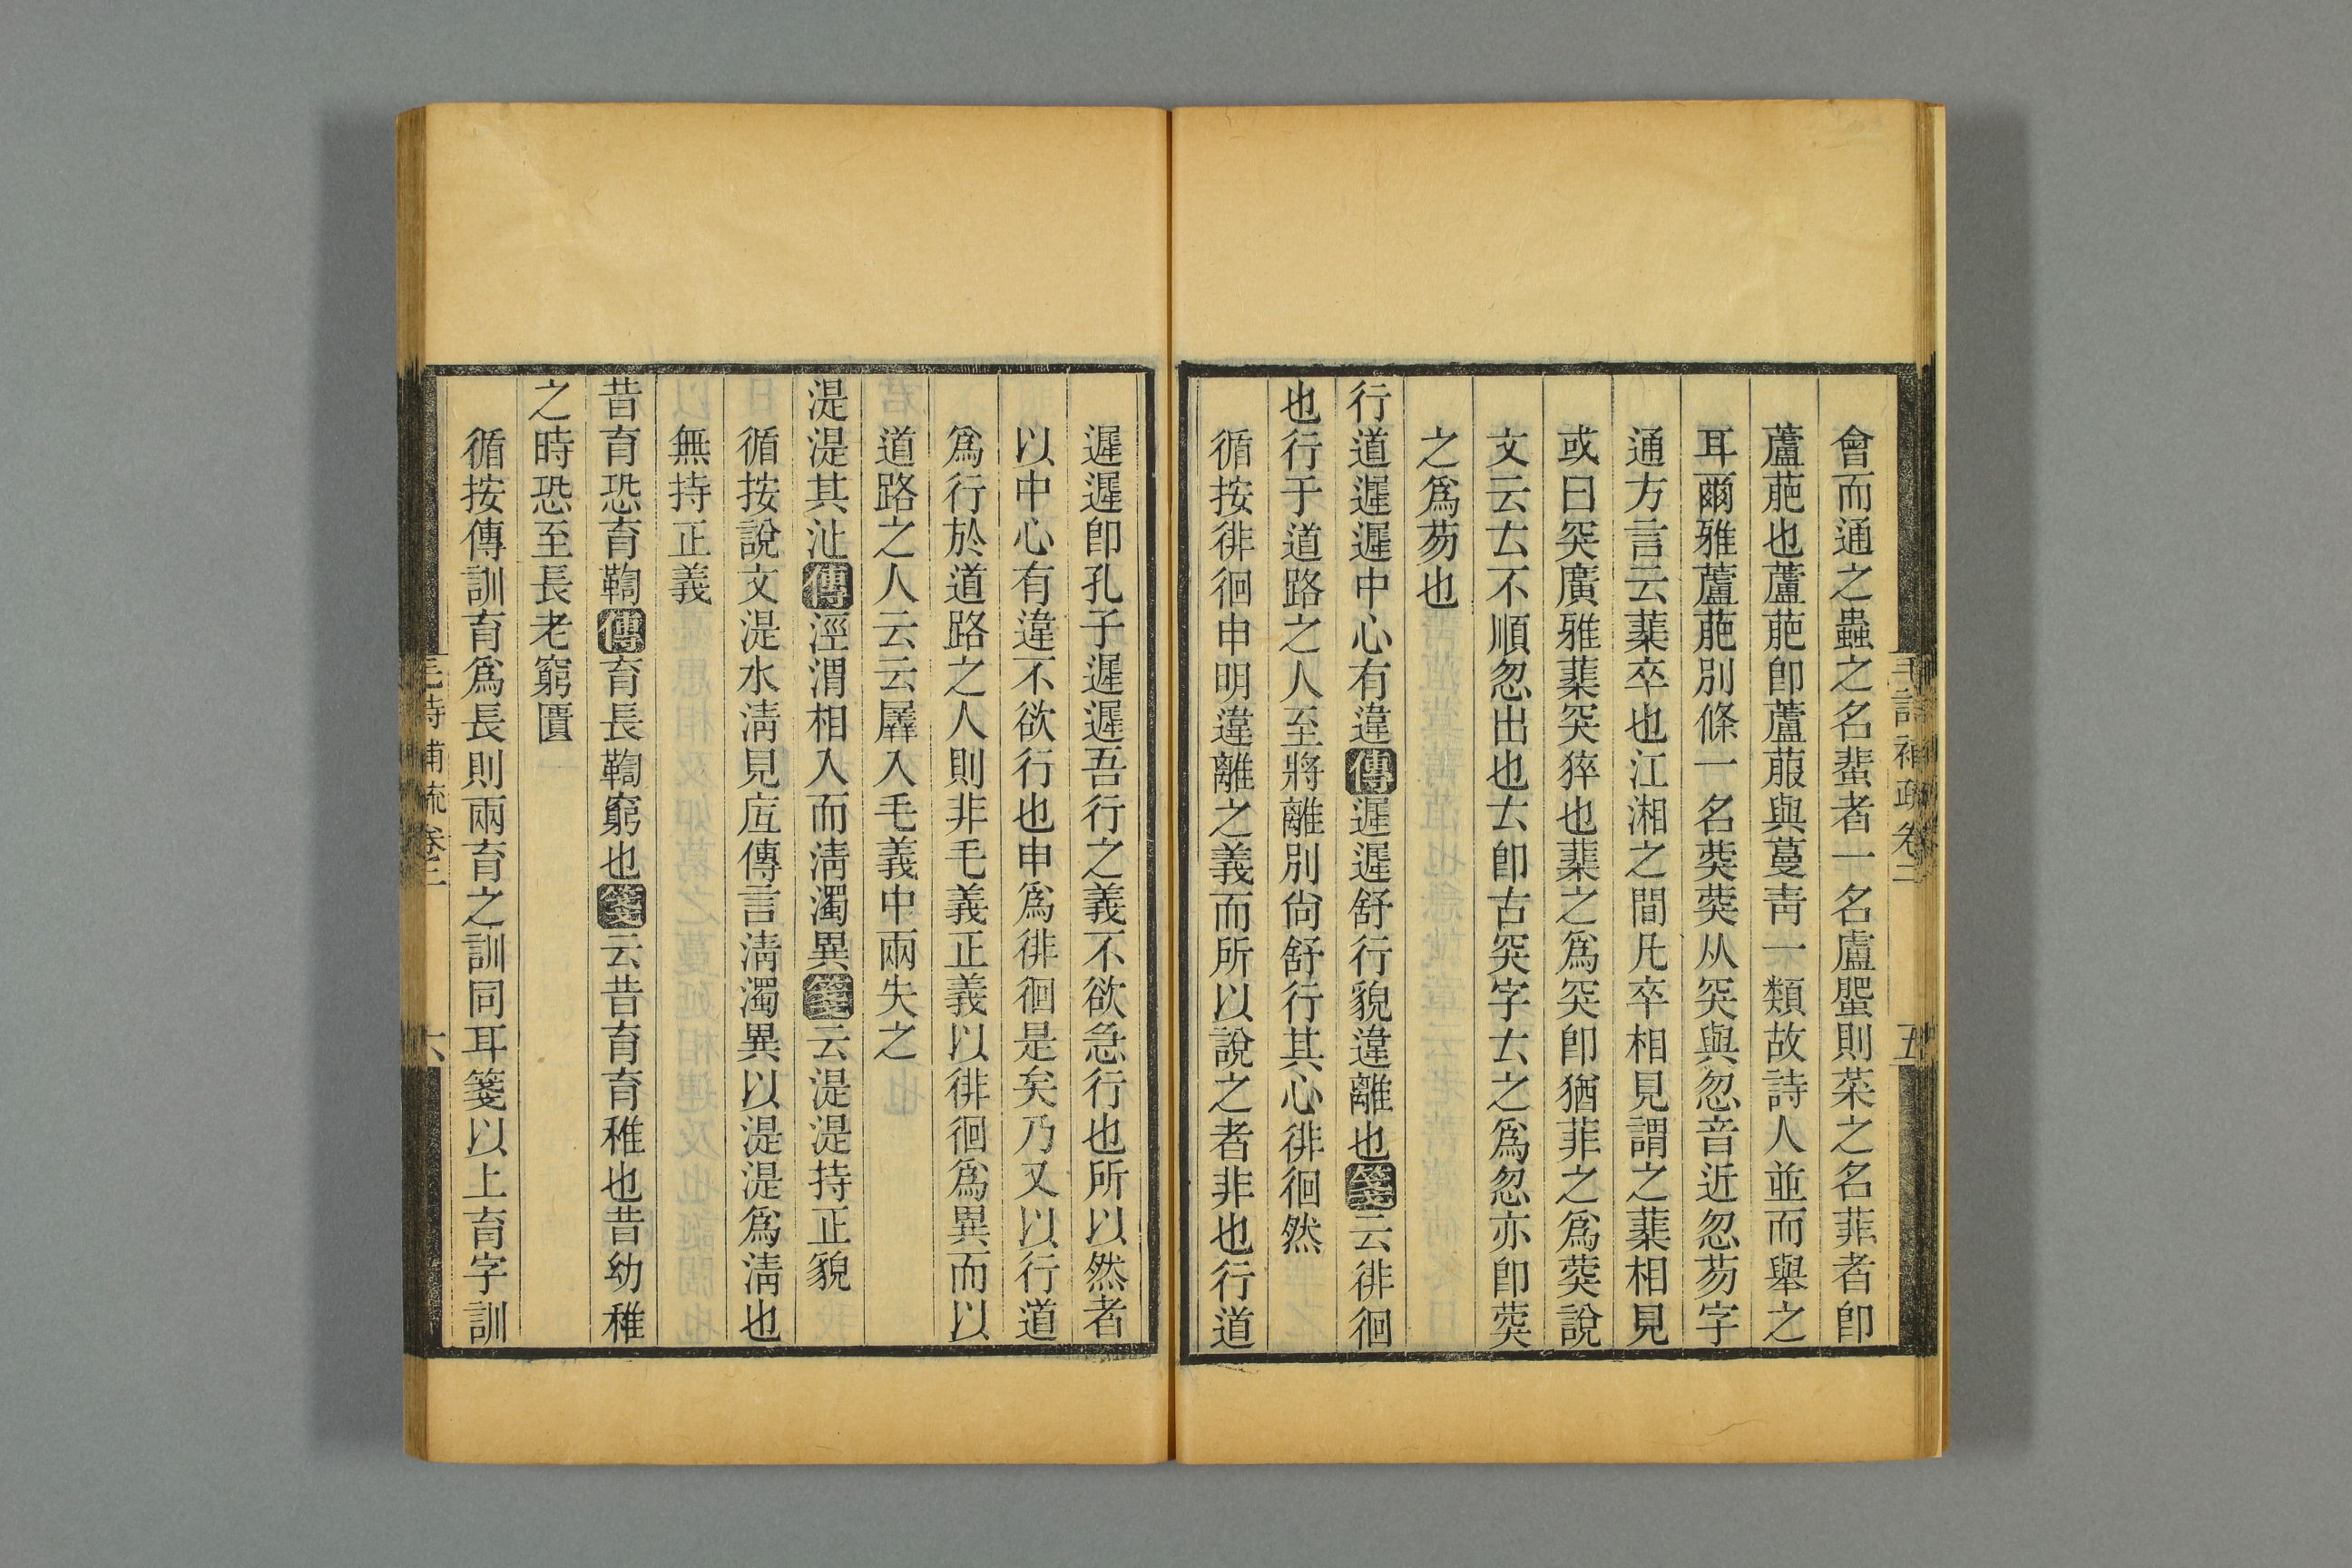 會而通之蟲之名蜚者一名盧蜰則菜之名菲者卽
蘆萉也蘆萉卽蘆菔與蔓菁一類故詩人並而舉之
耳爾雅蘆萉別條一名葖葖从突與忽音近忽芴字
通方言云蘽卒也江湘之間凡卒相見謂之蘽相見
或曰突廣雅蘽突猝也蘽之爲突卽猶菲之爲葖說
文云𠫓不順忽出也𠫓卽古突字𠫓之爲忽亦卽葖
之爲芴也
行道遲遲中心有違傳遲遲舒行貌違離也箋云徘徊
也行于道路之人至將離別尙舒行其心徘徊然
循按徘徊申明違離之義而所以說之者非也行道
毛詩補疏卷二 五
遲遲卽孔子遲遲吾行之義不欲急行也所以然者
以中心有違不欲行也申爲徘徊是矣乃又以行道
爲行於道路之人則非毛義正義以徘徊爲異而以
道路之人云云羼入毛義中兩失之
湜湜其沚傳涇渭相入而淸濁異箋云湜湜持正貌
循按說文湜水淸見底傳言淸濁異以湜湜爲淸也
無持正義
昔育恐育鞫傳育長鞫窮也箋云昔育育稚也昔幼稚
之時恐至長老窮匱
循按傳訓育爲長則兩育之訓同耳箋以上育字訓
毛詩補疏卷二 六